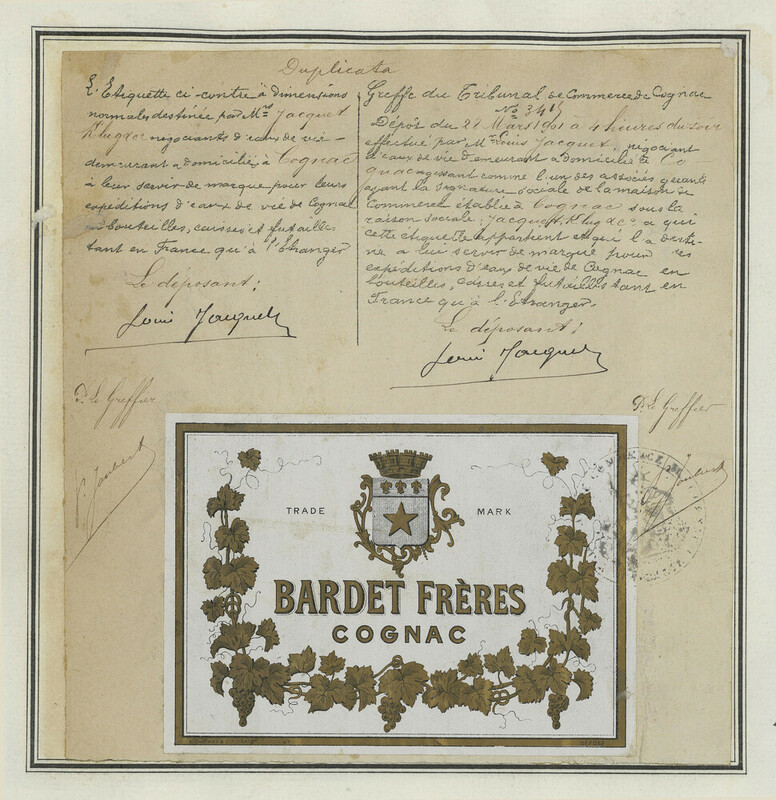 Duplicata
L'Etiquette ci-contre à dimensions
normales destinée par M.rs Jacquet
Klug & Co négociants d'eaux de vie
demeurant & domiciliés à Cognac
à leur servir de marque pour leurs
expéditions d'eaux de vie de Cognac
en bouteilles, caisses et futailles
tant en France qu'à l'Etranger
Le déposant:
Louis Jacquet
Greffe du Tribunal de Commerce de Cognac
No 341
Dépôt du 22 Mars 1901 à 4 heures du soir
effectué par Mr Louis Jacquet, négociant
d'eaux de vie demeurant & domicilié à Co
gnac agissant comme l'un des associés gérants
ayant la signature sociale de la maison de
Commerce établie à Cognac sous la
raison sociale: Jacquet, Klug & Co, à qui
cette étiquette appartient et qui l'a desti-
né à lui servir de marque pour ses
expéditions d'eaux de vie de Cognac en
bouteilles, caisses et futailles tant en
France qu'à l'Etranger.
Le déposant:
Louis Jacquet
Le Greffier
Le Greffier
Joubert
Joubert
TRADE MARK
BARDET FRÈRES
COGNAC